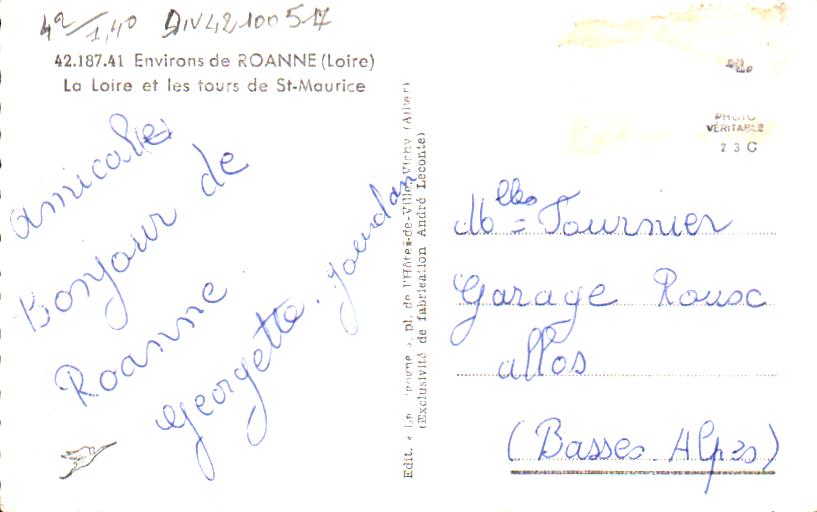 42.187.41 Environs de ROANNE (Loire)
La Loire et les tours de St-Maurice
amicales
Bonjour de
Roanne
Georgette. Jourdan
Edit. « La », pl. de l'Hôtel-de-Ville, Vichy (Allier)
(Exclusivité de fabrication André Leconte)
PHOTO
VÉRITABLE
2 3 G
Mlles = Fournier
Garage Rousc
allos
(Basses Alpes)